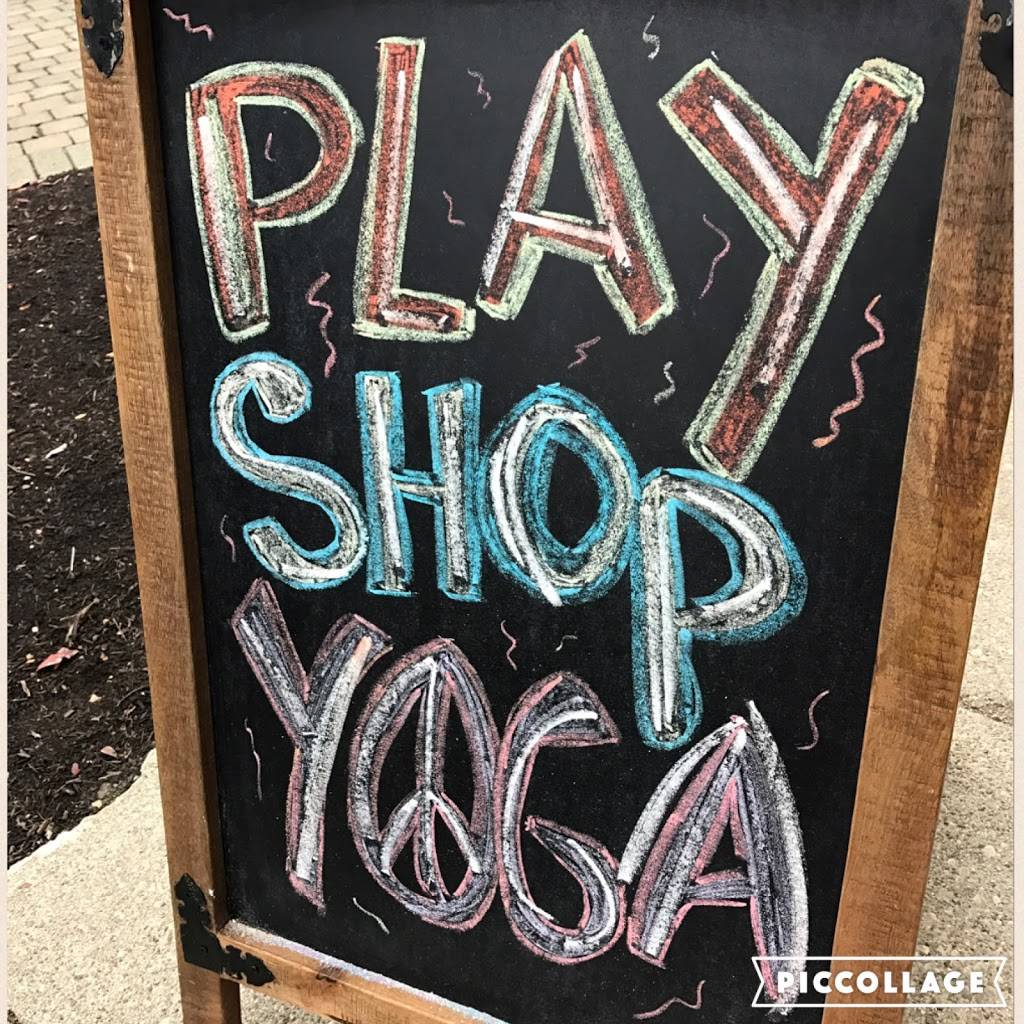 PLAY
SHOP
YOGA
PICCOLLAGE